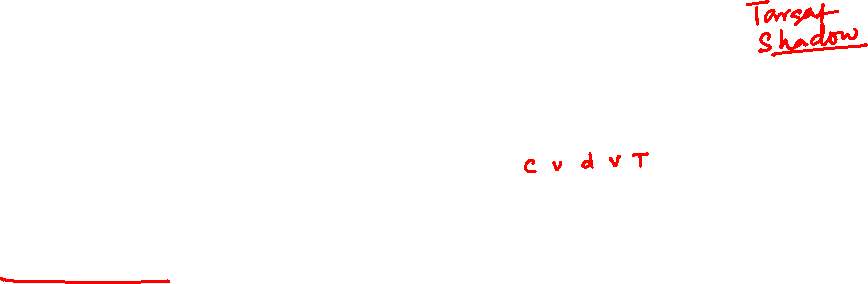 Target
Shadow
c v d v T